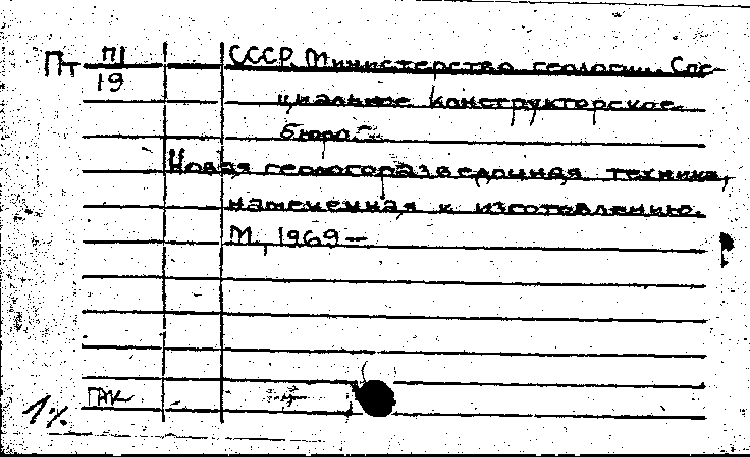 Пт П1 СССР. Министерство геологии. Спе-
19
циальное конструкторское
бюро.-
Новая геологоразведочная техника,
намеченная к изготовлению.
М., 1969-
ГАК